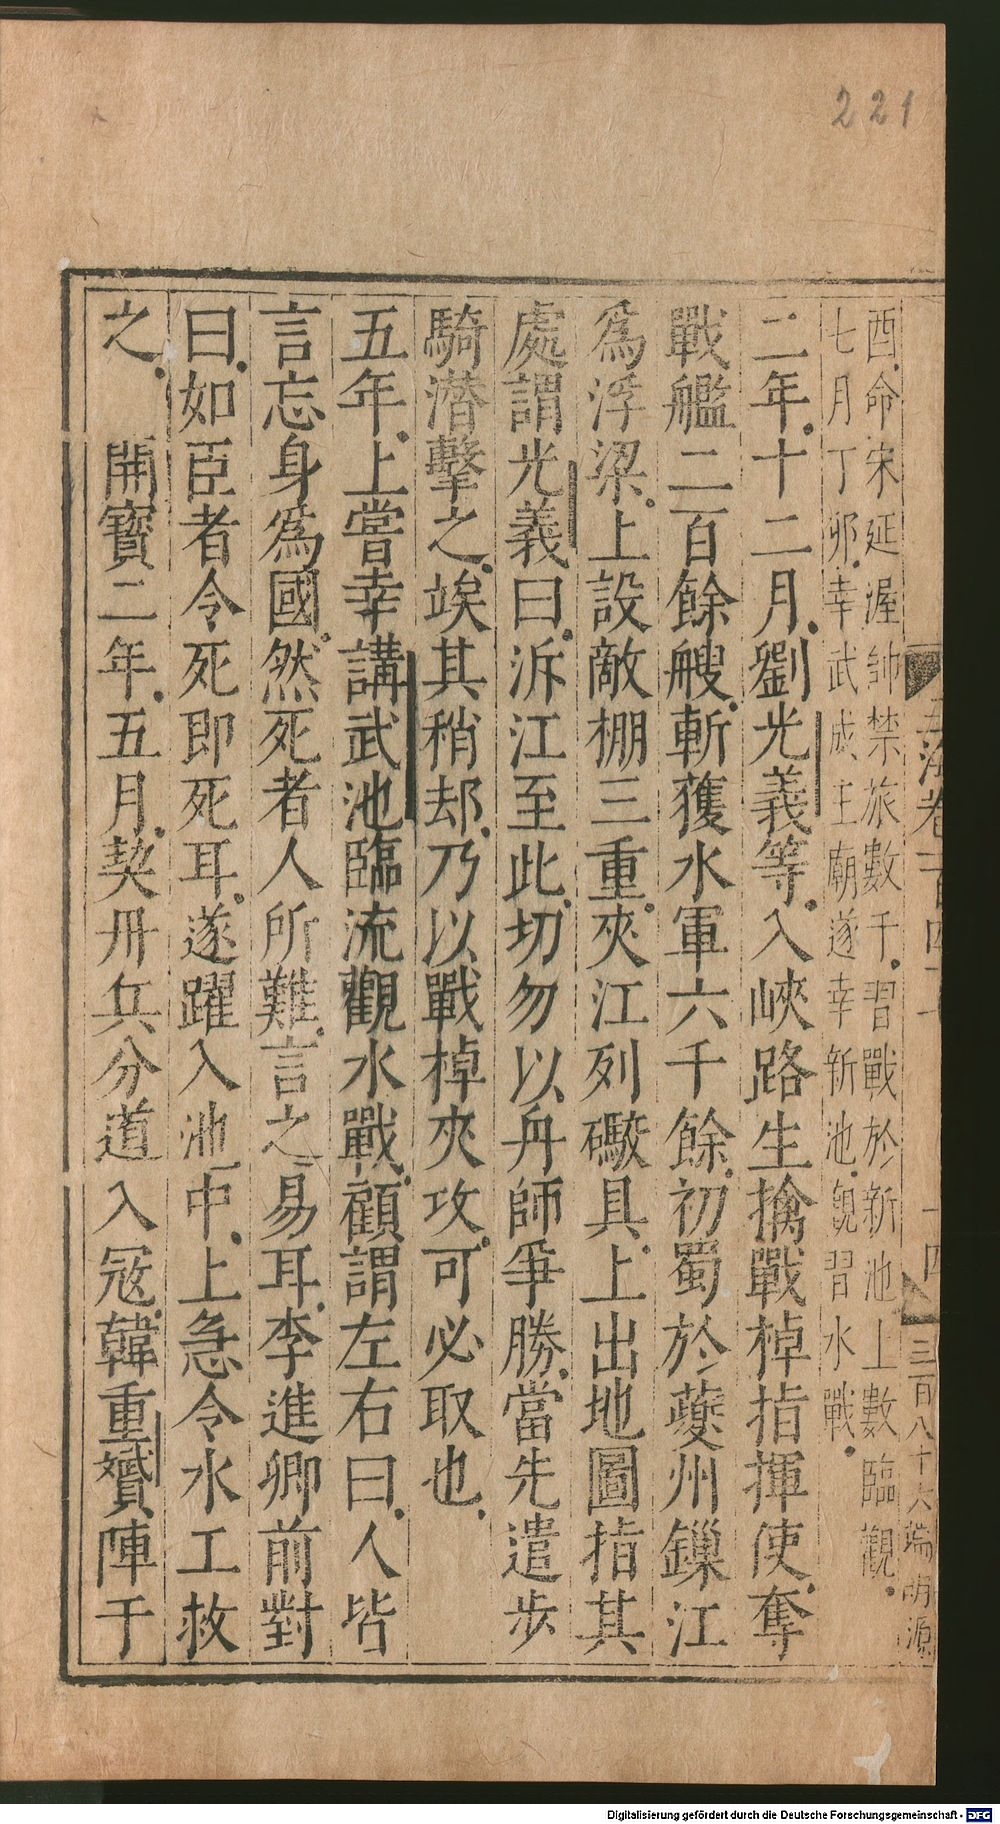 221
玉海卷一百四十七
十四
三百八十六 端明源
酉命宋延渥帥禁旅數千習戰於新池上數臨觀
七月丁卯幸武成王廟遂幸新池觀習水戰
二年十二月劉光義等入峽路生擒戰棹指揮使奪
戰艦二百餘艘斬獲水軍六千餘初蜀於夔州鏁江
爲浮梁上設敵棚三重夾江列礮具上出地圖指其
處謂光義曰泝江至此切勿以舟師爭勝當先遣步
騎潛擊之竢其稍却乃以戰棹夾攻可必取也
五年上嘗幸講武池臨流觀水戰顧謂左右曰人皆
言忘身爲國然死者人所難言之易耳李進卿前對
曰如臣者令死即死耳遂躍入池中上急令水工救
之 開寶二年五月契丹兵分道入冦韓重贇陣于
Digitalisierung gefördert durch die Deutsche Forschungsgemeinschaft - DFG